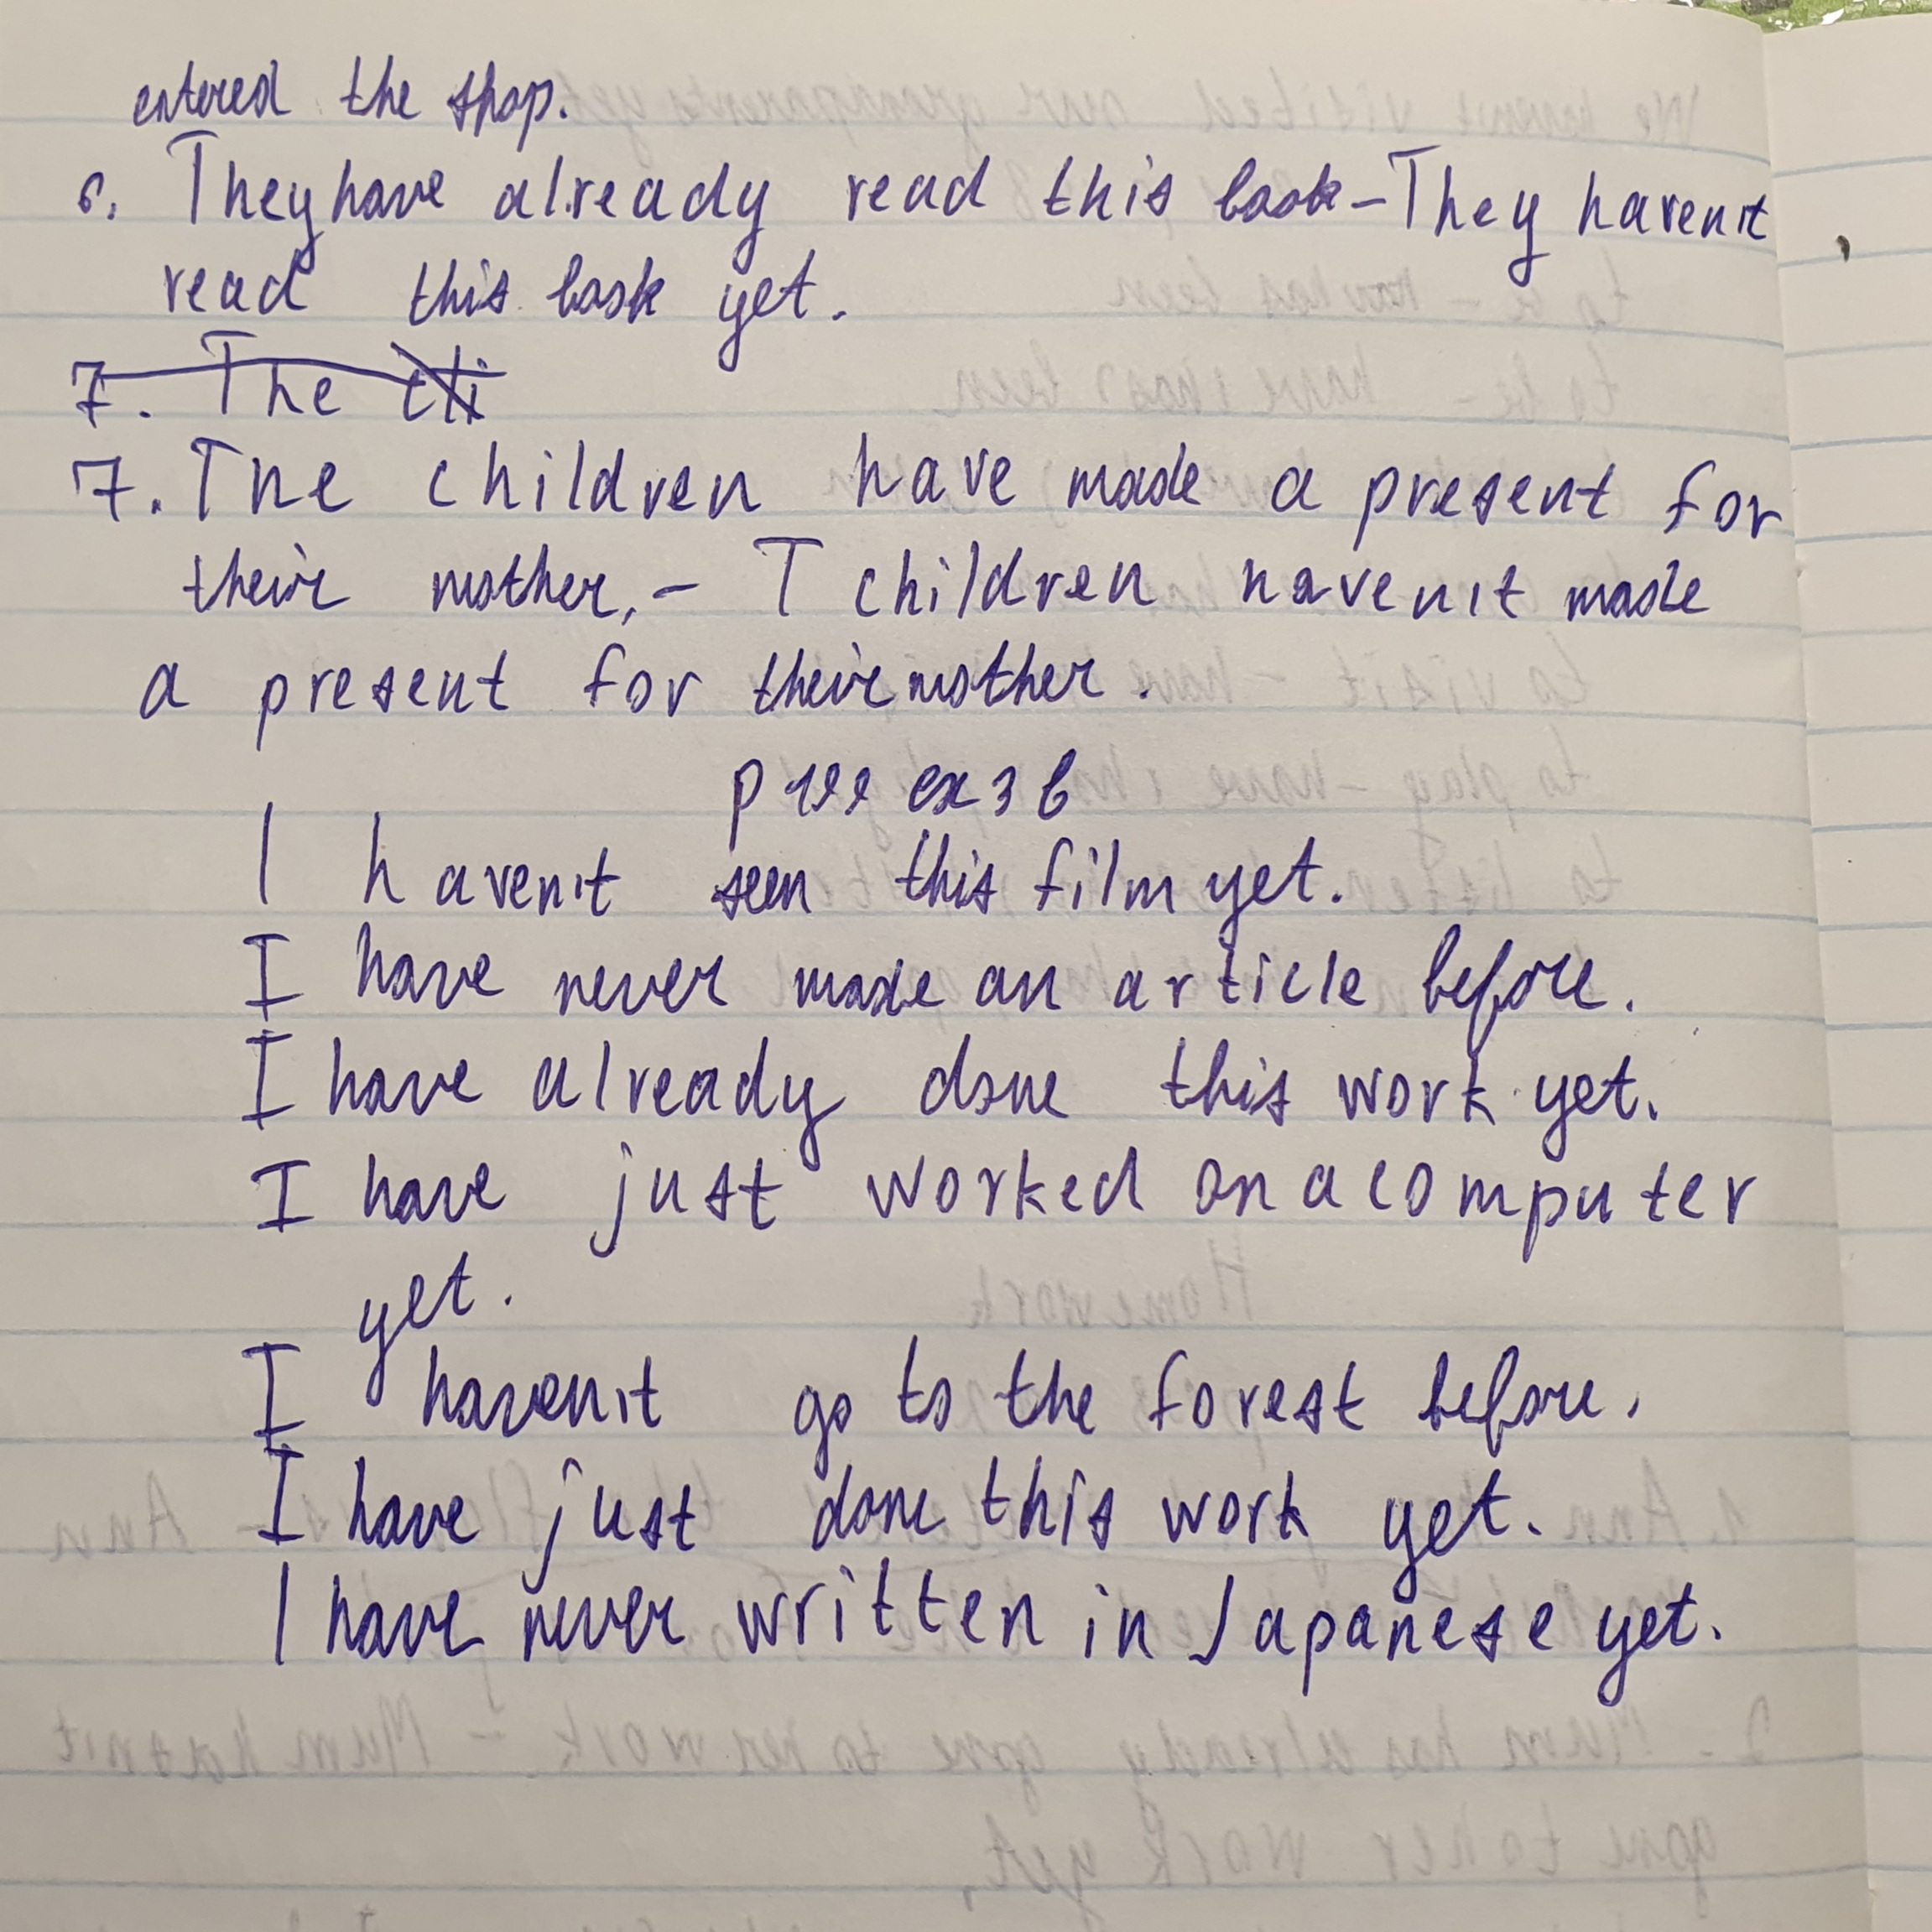 entered the shop.
6. They have already read this book - They haven't
read this book yet.
7. The
7. The children have made a present for
their mother. - T children haven't made
a present for their mother.
ex 3 b
I haven't seen this film yet.
I have never made an article before.
I have already done this work yet.
I have just worked on a computer
yet.
I haven't go to the forest before.
I have just done this work yet.
I have never written in Japanese yet.